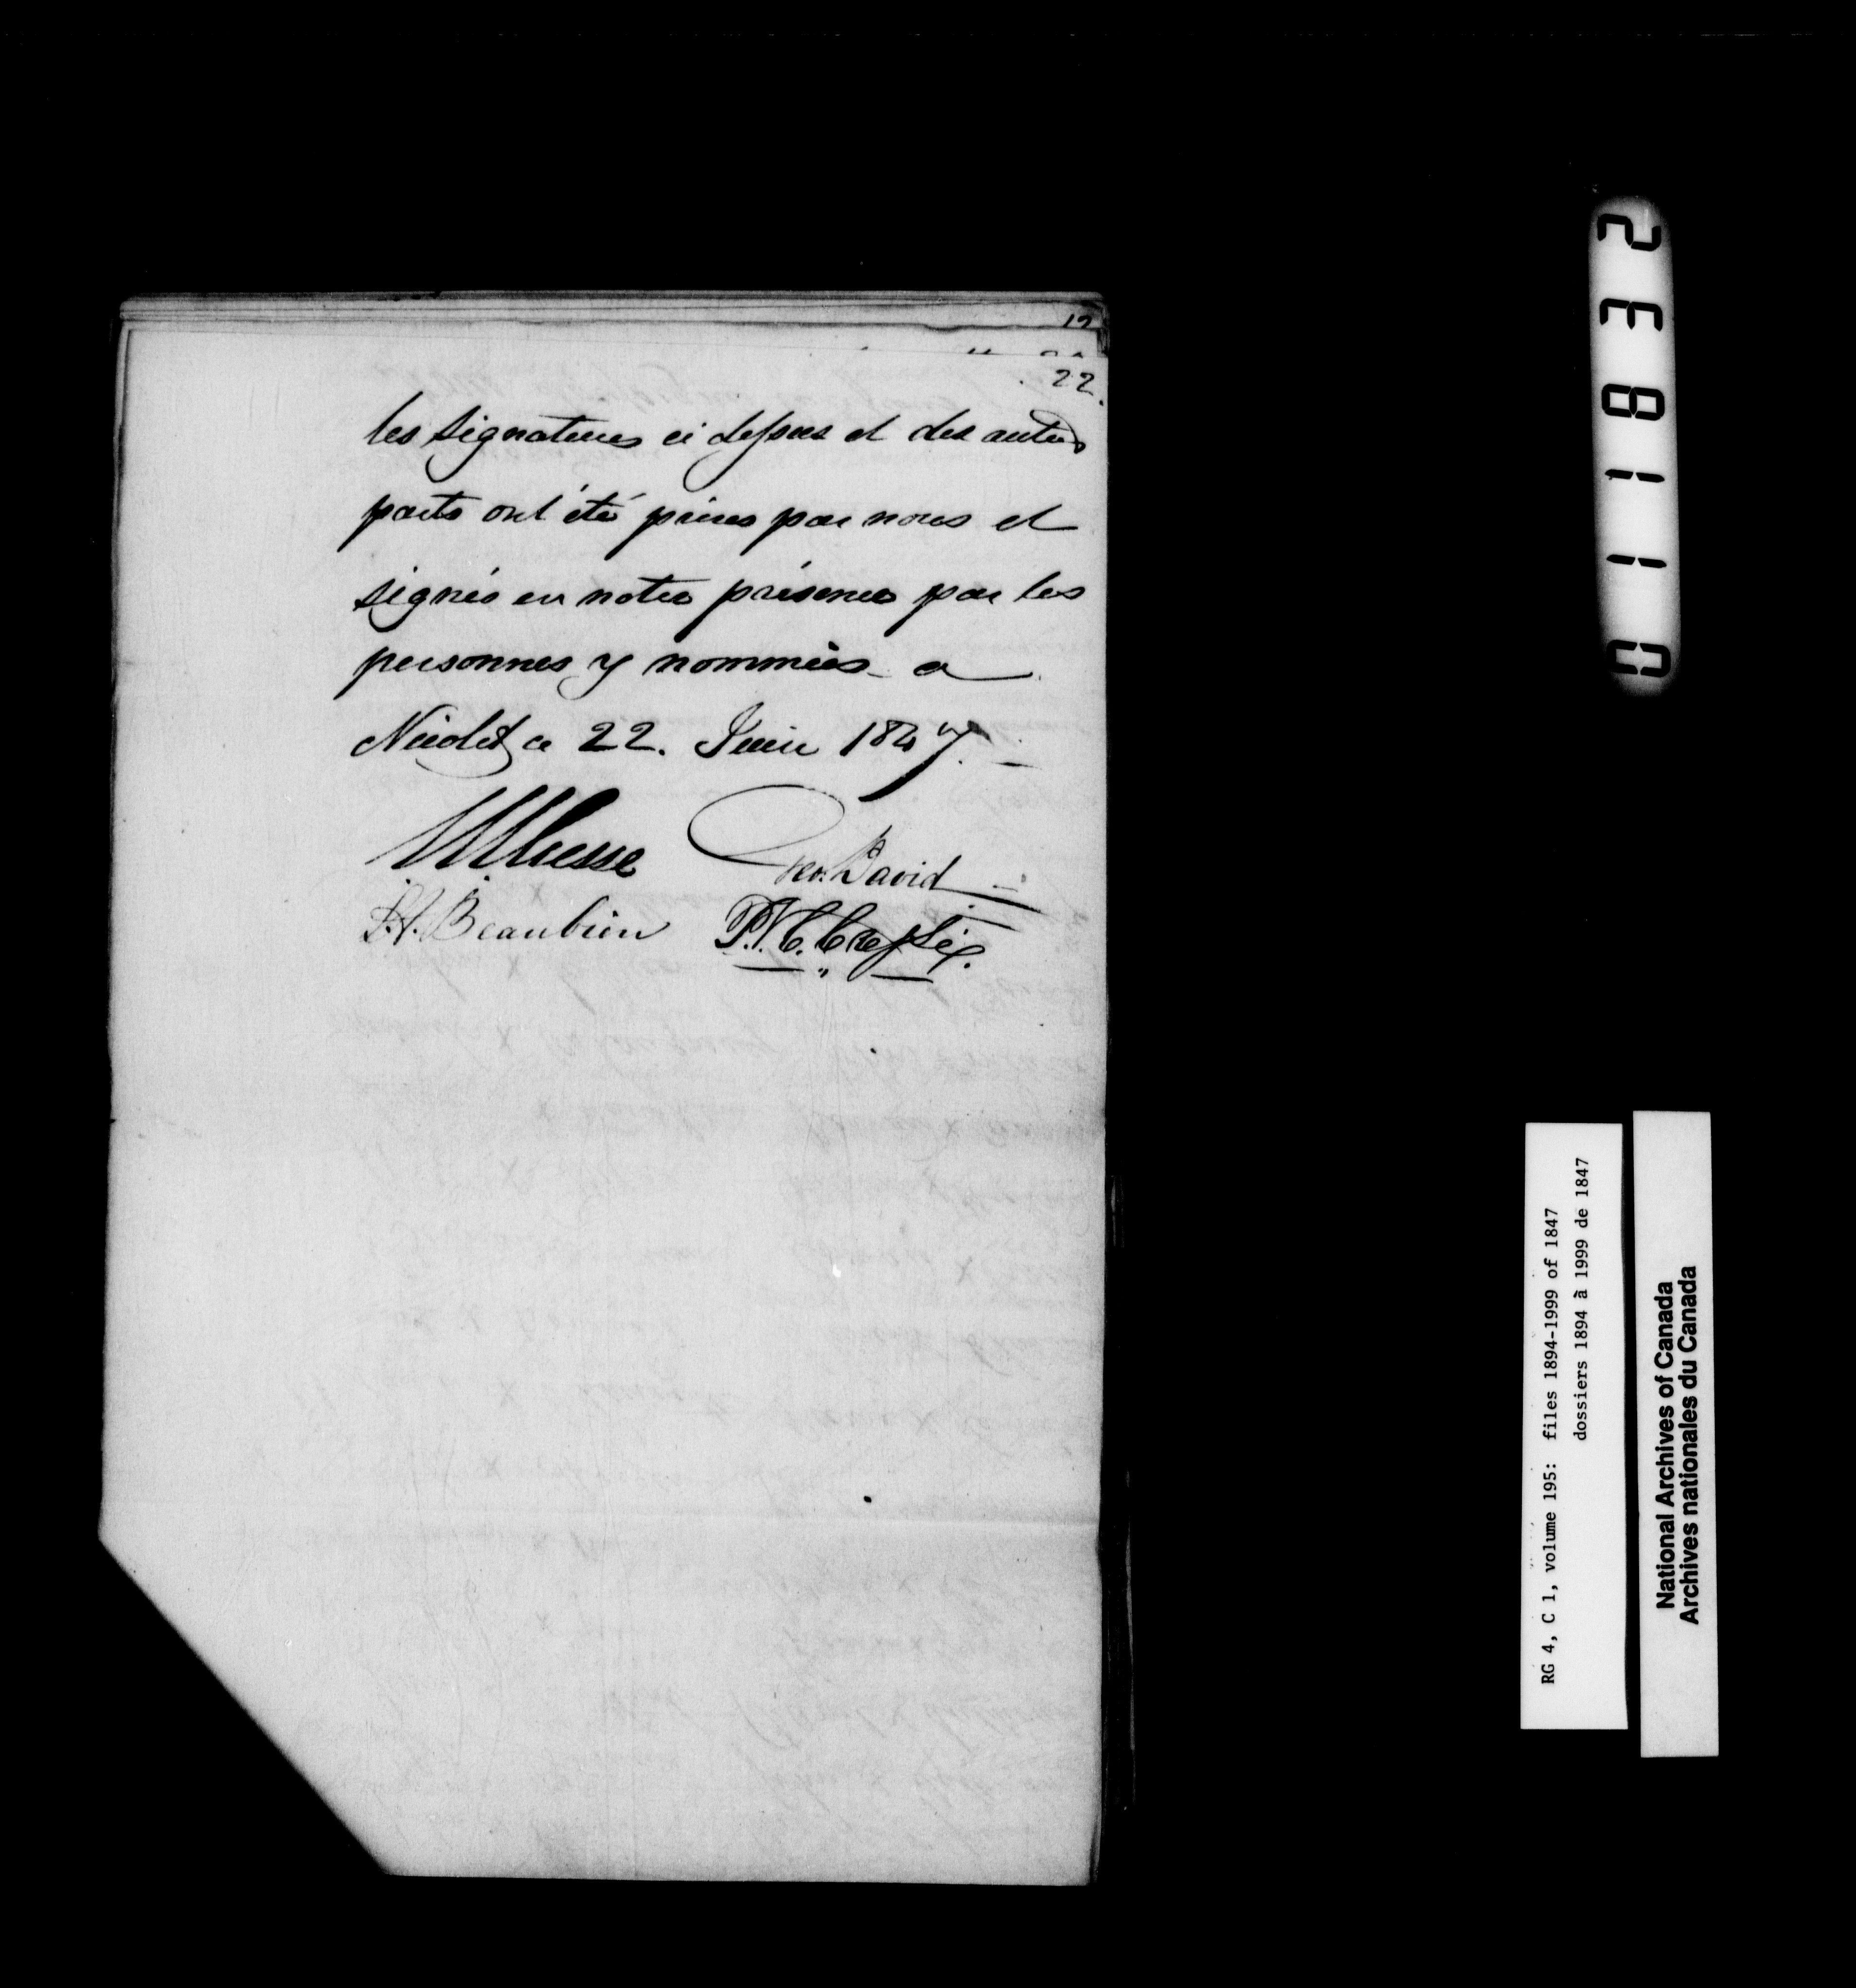 12
22.
les signatures ci dessus et des autres
parts ont été prises par nous et
signés en notre présence par les
personnes y nommées a
Nicolet ce 22. Juin 1847.
Geo. David
Beaubien
P. N. C. Cressé.
011832
RG 4, C 1, volume 195: files 1894-1999 of 1847
dossiers 1894 à 1999 de 1847
National Archives of Canada
Archives nationales du Canada